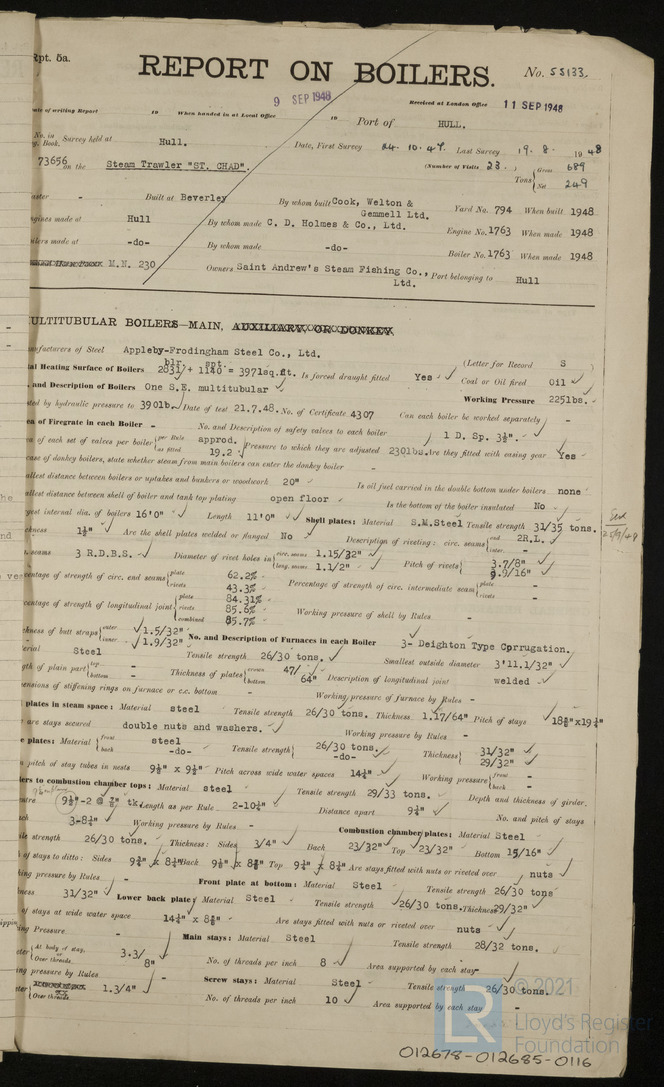 Rpt. 5a.
REPORT ON BOILERS.
No. 55133.
9 SEP 1948
Received at London Office 11 SEP 1948
ate of writing Report 19 When handed in at Local Office 19 Port of HULL.
No. in Survey held at Hull. Date, First Survey 24.10.47. Last Survey 19.8. 1948
g. Book.
73656 on the Steam Trawler "ST. CHAD". (Number of Visits 23.) Tons Gross 689 Net 249
aster - Built at Beverley By whom built Cook, Welton & Gemmell Ltd. Yard No. 794 When built 1948
ngines made at Hull By whom made C. D. Holmes & Co., Ltd. Engine No. 1763 When made 1948
ilers made at -do- By whom made -do- Boiler No. 1763 When made 1948
M.N. 230 Owners Saint Andrew's Steam Fishing Co., Ltd. Port belonging to Hull
ULTITUBULAR BOILERS—MAIN, AUXILIARY, OR DONKEY
nufacturers of Steel Appleby-Frodingham Steel Co., Ltd. (Letter for Record S )
tal Heating Surface of Boilers blr. 2831 + spt. 1140 = 3971sq.ft. Is forced draught fitted Yes Coal or Oil fired Oil
. and Description of Boilers One S.E. multitubular Working Pressure 225lbs.
ted by hydraulic pressure to 390lb. Date of test 21.7.48. No. of Certificate 4307 Can each boiler be worked separately -
ea of Firegrate in each Boiler - No. and Description of safety valves to each boiler 1 D. Sp. 3½".
ea of each set of valves per boiler per Rule approd. as fitted 19.2 Pressure to which they are adjusted 230lbs. Are they fitted with easing gear Yes
case of donkey boilers, state whether steam from main boilers can enter the donkey boiler -
allest distance between boilers or uptakes and bunkers or woodwork 20" Is oil fuel carried in the double bottom under boilers none
allest distance between shell of boiler and tank top plating open floor Is the bottom of the boiler insulated No
rgest internal dia. of boilers 16'0" Length 11'0" Shell plates: Material S.M.Steel Tensile strength 31/35 tons.
ckness 1½" Are the shell plates welded or flanged No Description of riveting: circ. seams end 2R.L. inter. -
. seams 3 R.D.B.S. Diameter of rivet holes in circ. seams 1.15/32" long. seams 1.1/2" Pitch of rivets 3.7/8" 9.9/16"
centage of strength of circ. end seams plate 62.2% rivets 43.3% Percentage of strength of circ. intermediate seam plate - rivets -
centage of strength of longitudinal joint plate 84.31% rivets 85.6% combined 85.7% Working pressure of shell by Rules -
ckness of butt straps outer 1.5/32" inner 1.9/32" No. and Description of Furnaces in each Boiler 3- Deighton Type Corrugation.
erial Steel Tensile strength 26/30 tons. Smallest outside diameter 3'11.1/32"
gth of plain part top - bottom - Thickness of plates crown bottom 47/64" Description of longitudinal joint welded
ensions of stiffening rings on furnace or c.c. bottom - Working pressure of furnace by Rules -
plates in steam space: Material steel Tensile strength 26/30 tons. Thickness 1.17/64" Pitch of stays 18½"x19¼"
are stays secured double nuts and washers. Working pressure by Rules -
e plates: Material front steel back -do- Tensile strength 26/30 tons. -do- Thickness 31/32" 29/32"
n pitch of stay tubes in nests 9½" x 9½" Pitch across wide water spaces 14¼" Working pressure front - back -
ders to combustion chamber tops: Material steel Tensile strength 29/33 tons. Depth and thickness of girder,
entre 9½"-2 @ ⅞" tk. Length as per Rule 2-10¼" Distance apart 9¼" No. and pitch of stays
ch 3-8¼" Working pressure by Rules - Combustion chamber plates: Material Steel
ile strength 26/30 tons. Thickness: Sides 3/4" Back 23/32" Top 23/32" Bottom 15/16"
h of stays to ditto: Sides Back Top Are stays fitted with nuts or riveted over nuts
king pressure by Rules - Front plate at bottom: Material Steel Tensile strength 26/30 tons
kness 31/32" Lower back plate: Material Steel Tensile strength 26/30 tons. Thickness 29/32"
of stays at wide water space Are stays fitted with nuts or riveted over nuts
ing Pressure - Main stays: Material Steel Tensile strength 28/32 tons.
eter At body of stay, or Over threads. 3.3/8" No. of threads per inch 8 Area supported by each stay -
ing pressure by Rules - Screw stays: Material Steel Tensile strength 26/30 tons.
eter Over threads 1.3/4" No. of threads per inch 10 Area supported by each stay -
© 2021
LR
Lloyd's Register
Foundation
012678-012685-0116